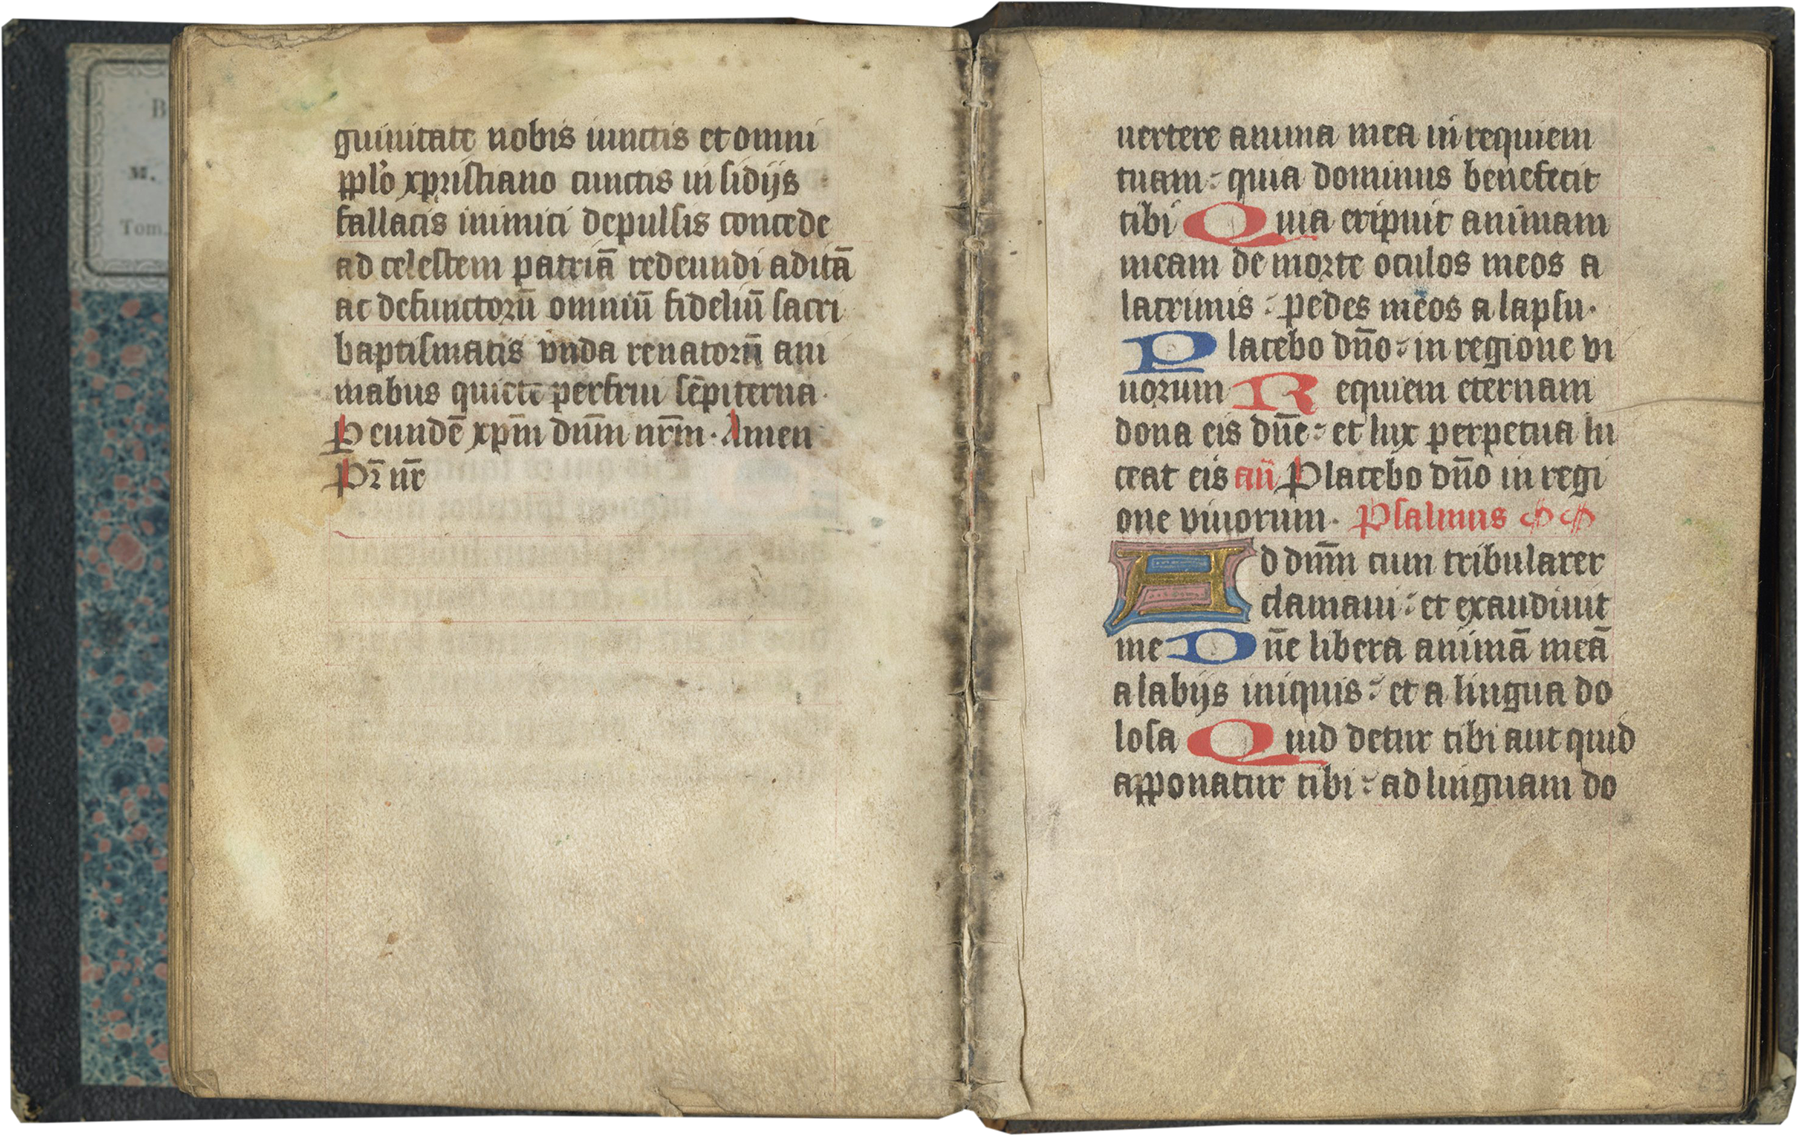 B
M.
Tom.
guinitate nobis iunctis et omni
pplo xpristiano cunctis in sidijs
fallacis inimici depulsis concede
ad celestem patriā redeundi aditā
ac defunctorū omniū fideliū sacri
baptismatis vnda renatorū ani
mabus quiete perfrui sēpiterna
P eundē xpm̄ dnm̄ nrm̄ · Amen
Pr̄ nr̄
uertere anima mea in requiem
tuam : quia dominus benefecit
tibi Quia eripuit animam
meam de morte oculos meos a
lacrimis : pedes meos a lapsu ·
Placebo dn̄o : in regione vi
uorum Requiem eternam
dona eis dn̄e : et lux perpetua lu
ceat eis an̄ Placebo dn̄o in regi
one viuorum · Psalmus
Ad dnm̄ cum tribularer
clamaui : et exaudiuit
me Dn̄e libera animā meā
a labijs iniquis : et a lingua do
losa Quid detur tibi aut quid
apponatur tibi : ad linguam do